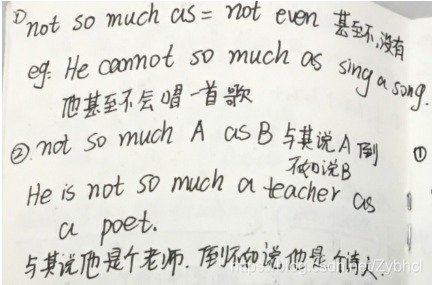 ① not so much as = not even 甚至不,没有
eg: He cannot so much as sing a song.
他甚至不会唱一首歌
②. not so much A as B 与其说A倒
不如说B
①
He is not so much a teacher as
a poet.
与其说他是个老师. 倒不如说他是个诗人.
https://blog.csdn.net/Zybhcl